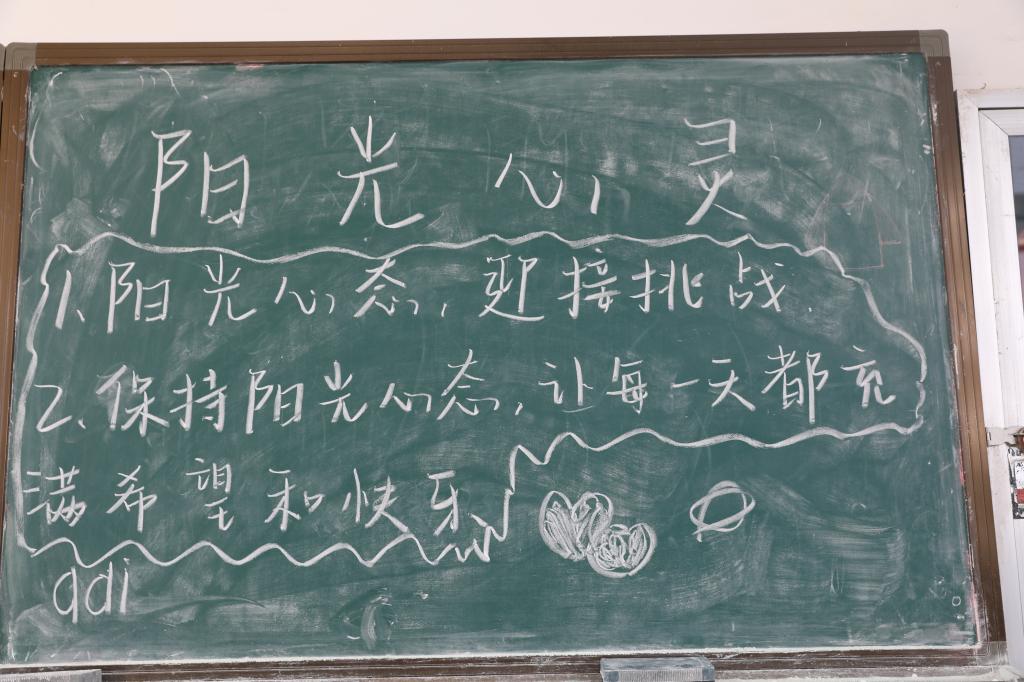 阳光心灵
1.阳光心态,迎接挑战.
2.保持阳光心态,让每一天都充
满希望和快乐
qdi